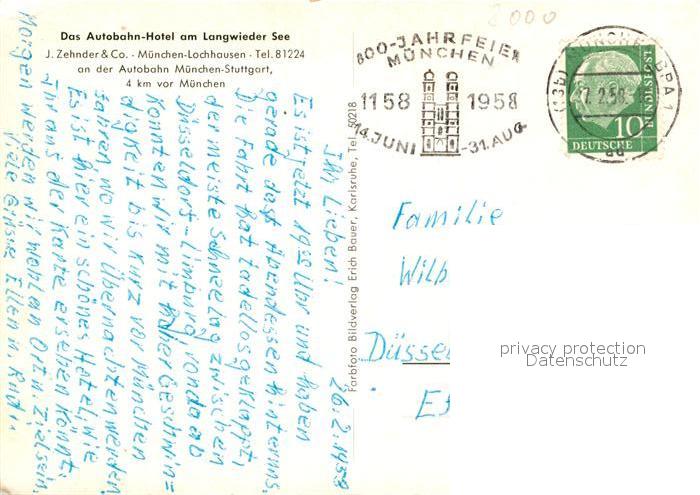 Das Autobahn-Hotel am Langwieder See
J. Zehnder & Co. · München-Lochhausen · Tel. 81224
an der Autobahn München-Stuttgart,
4 km vor München
26.2.1958
Ihr Lieben!
Es ist jetzt 19 Uhr und haben
gerade das Abendessen hinter uns.
Die Fahrt hat tadellos geklappt,
der meiste Schnee lag zwischen
Düsseldorf-Limburg, von da ab
konnten wir mit hoher Geschwin=
digkeit bis kurz vor München
fahren, wo wir übernachten werden.
Es ist hier ein schönes Hotel, wie
Ihr aus der Karte ersehen könnt.
Morgen werden wir wohl an Ort u. Ziel sein.
Viele Grüsse Ellen u. Rudi
Farbfoto Bildverlag Erich Bauer, Karlsruhe, Tel. 50218
2000
800-JAHRFEIER
MÜNCHEN
1158 1958
14.JUNI -31.AUG.
MÜNCHEN
10
DEUTSCHE
BUNDESPOST
Familie
Wilb
Düssel
privacy protection
Datenschutz